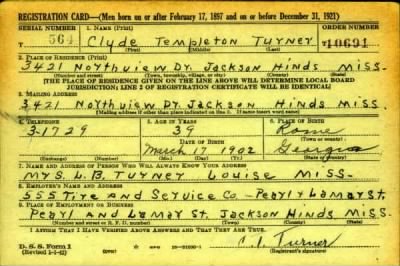 REGISTRATION CARD—(Men born on or after February 17, 1897 and on or before December 31, 1921)
SERIAL NUMBER 1. NAME (Print) ORDER NUMBER
564 Clyde Templeton Turner 10691
(First) (Middle) (Last)
2. PLACE OF RESIDENCE (Print)
3421 Northview Dr. Jackson Hinds Miss.
(Number and street) (Town, township, village, or city) (County) (State)
[THE PLACE OF RESIDENCE GIVEN ON THE LINE ABOVE WILL DETERMINE LOCAL BOARD
JURISDICTION; LINE 2 OF REGISTRATION CERTIFICATE WILL BE IDENTICAL]
3. MAILING ADDRESS
3421 Northview Dr. Jackson Hinds Miss.
[Mailing address if other than place indicated on line 2. If same insert word same]
4. TELEPHONE 5. AGE IN YEARS 6. PLACE OF BIRTH
3-1729 39 Rome
DATE OF BIRTH (Town or county)
March 17 1902 Georgia
(Exchange) (Number) (Mo.) (Day) (Yr.) (State or country)
7. NAME AND ADDRESS OF PERSON WHO WILL ALWAYS KNOW YOUR ADDRESS
Mrs. L.B. Turner Louise Miss.
8. EMPLOYER'S NAME AND ADDRESS
555 Tire and Service Co - Pearl y Lamar St.
9. PLACE OF EMPLOYMENT OR BUSINESS
Pearl and Lamar St. Jackson Hinds Miss.
(Number and street or R. F. D. number) (Town) (County) (State)
I AFFIRM THAT I HAVE VERIFIED ABOVE ANSWERS AND THAT THEY ARE TRUE.
D. S. S. Form 1
(Revised 1-1-42) (over) C. T. Turner
(Registrant's signature)